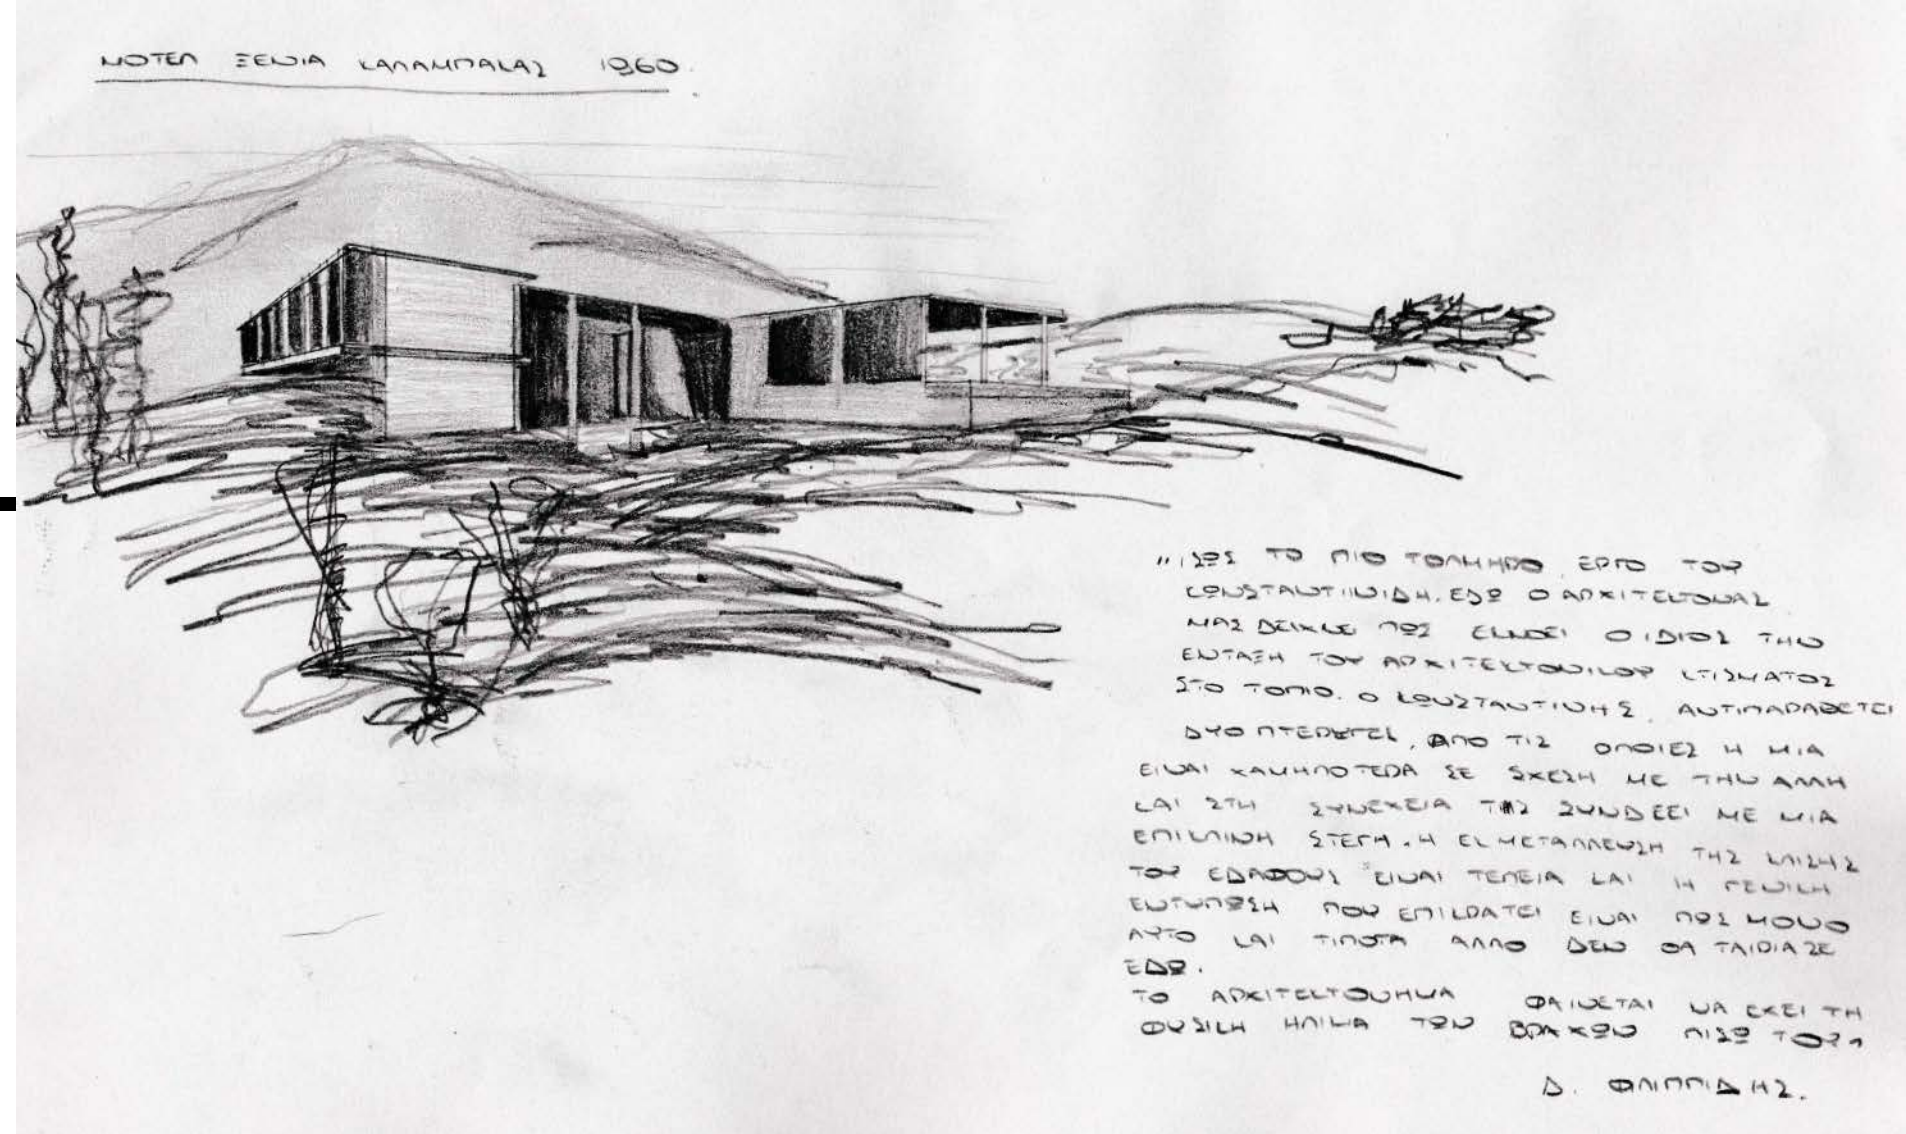 ΜΟΤΕΛ ΞΕΝΙΑ ΚΑΛΑΜΠΑΚΑΣ 1960.
"ΙΣΩΣ ΤΟ ΠΙΟ ΤΟΛΜΗΡΟ ΕΡΓΟ ΤΟΥ
ΚΩΝΣΤΑΝΤΙΝΙΔΗ. ΕΔΩ Ο ΑΡΧΙΤΕΚΤΟΝΑΣ
ΜΑΣ ΔΕΙΧΝΕΙ ΠΩΣ ΕΝΝΟΕΙ Ο ΙΔΙΟΣ ΤΗΝ
ΕΝΤΑΞΗ ΤΟΥ ΑΡΧΙΤΕΚΤΟΝΙΚΟΥ ΚΤΙΣΜΑΤΟΣ
ΣΤΟ ΤΟΠΙΟ. Ο ΚΩΝΣΤΑΝΤΙΝΗΣ ΑΝΤΙΠΑΡΑΘΕΤΕΙ
ΔΥΟ ΠΤΕΡΥΓΕΣ, ΑΠΟ ΤΙΣ ΟΠΟΙΕΣ Η ΜΙΑ
ΕΙΝΑΙ ΧΑΜΗΛΟΤΕΡΑ ΣΕ ΣΧΕΣΗ ΜΕ ΤΗΝ ΑΛΛΗ
ΚΑΙ ΣΤΗ ΣΥΝΕΧΕΙΑ ΤΙΣ ΣΥΝΔΕΕΙ ΜΕ ΜΙΑ
ΕΠΙΚΛΙΝΗ ΣΤΕΓΗ. Η ΕΚΜΕΤΑΛΛΕΥΣΗ ΤΗΣ ΚΛΙΣΗΣ
ΤΟΥ ΕΔΑΦΟΥΣ ΕΙΝΑΙ ΤΕΛΕΙΑ ΚΑΙ Η ΓΕΝΙΚΗ
ΕΝΤΥΠΩΣΗ ΠΟΥ ΕΠΙΚΡΑΤΕΙ ΕΙΝΑΙ ΠΩΣ ΜΟΝΟ
ΑΥΤΟ ΚΑΙ ΤΙΠΟΤΑ ΑΛΛΟ ΔΕΝ ΘΑ ΤΑΙΡΙΑΖΕ
ΕΔΩ.
ΤΟ ΑΡΧΙΤΕΚΤΟΝΗΜΑ ΦΑΙΝΕΤΑΙ ΝΑ ΕΧΕΙ ΤΗ
ΦΥΣΙΚΗ ΗΛΙΚΙΑ ΤΩΝ ΒΡΑΧΩΝ ΠΙΣΩ ΤΟΥ"
Δ. ΦΙΛΙΠΠΙΔΗΣ.